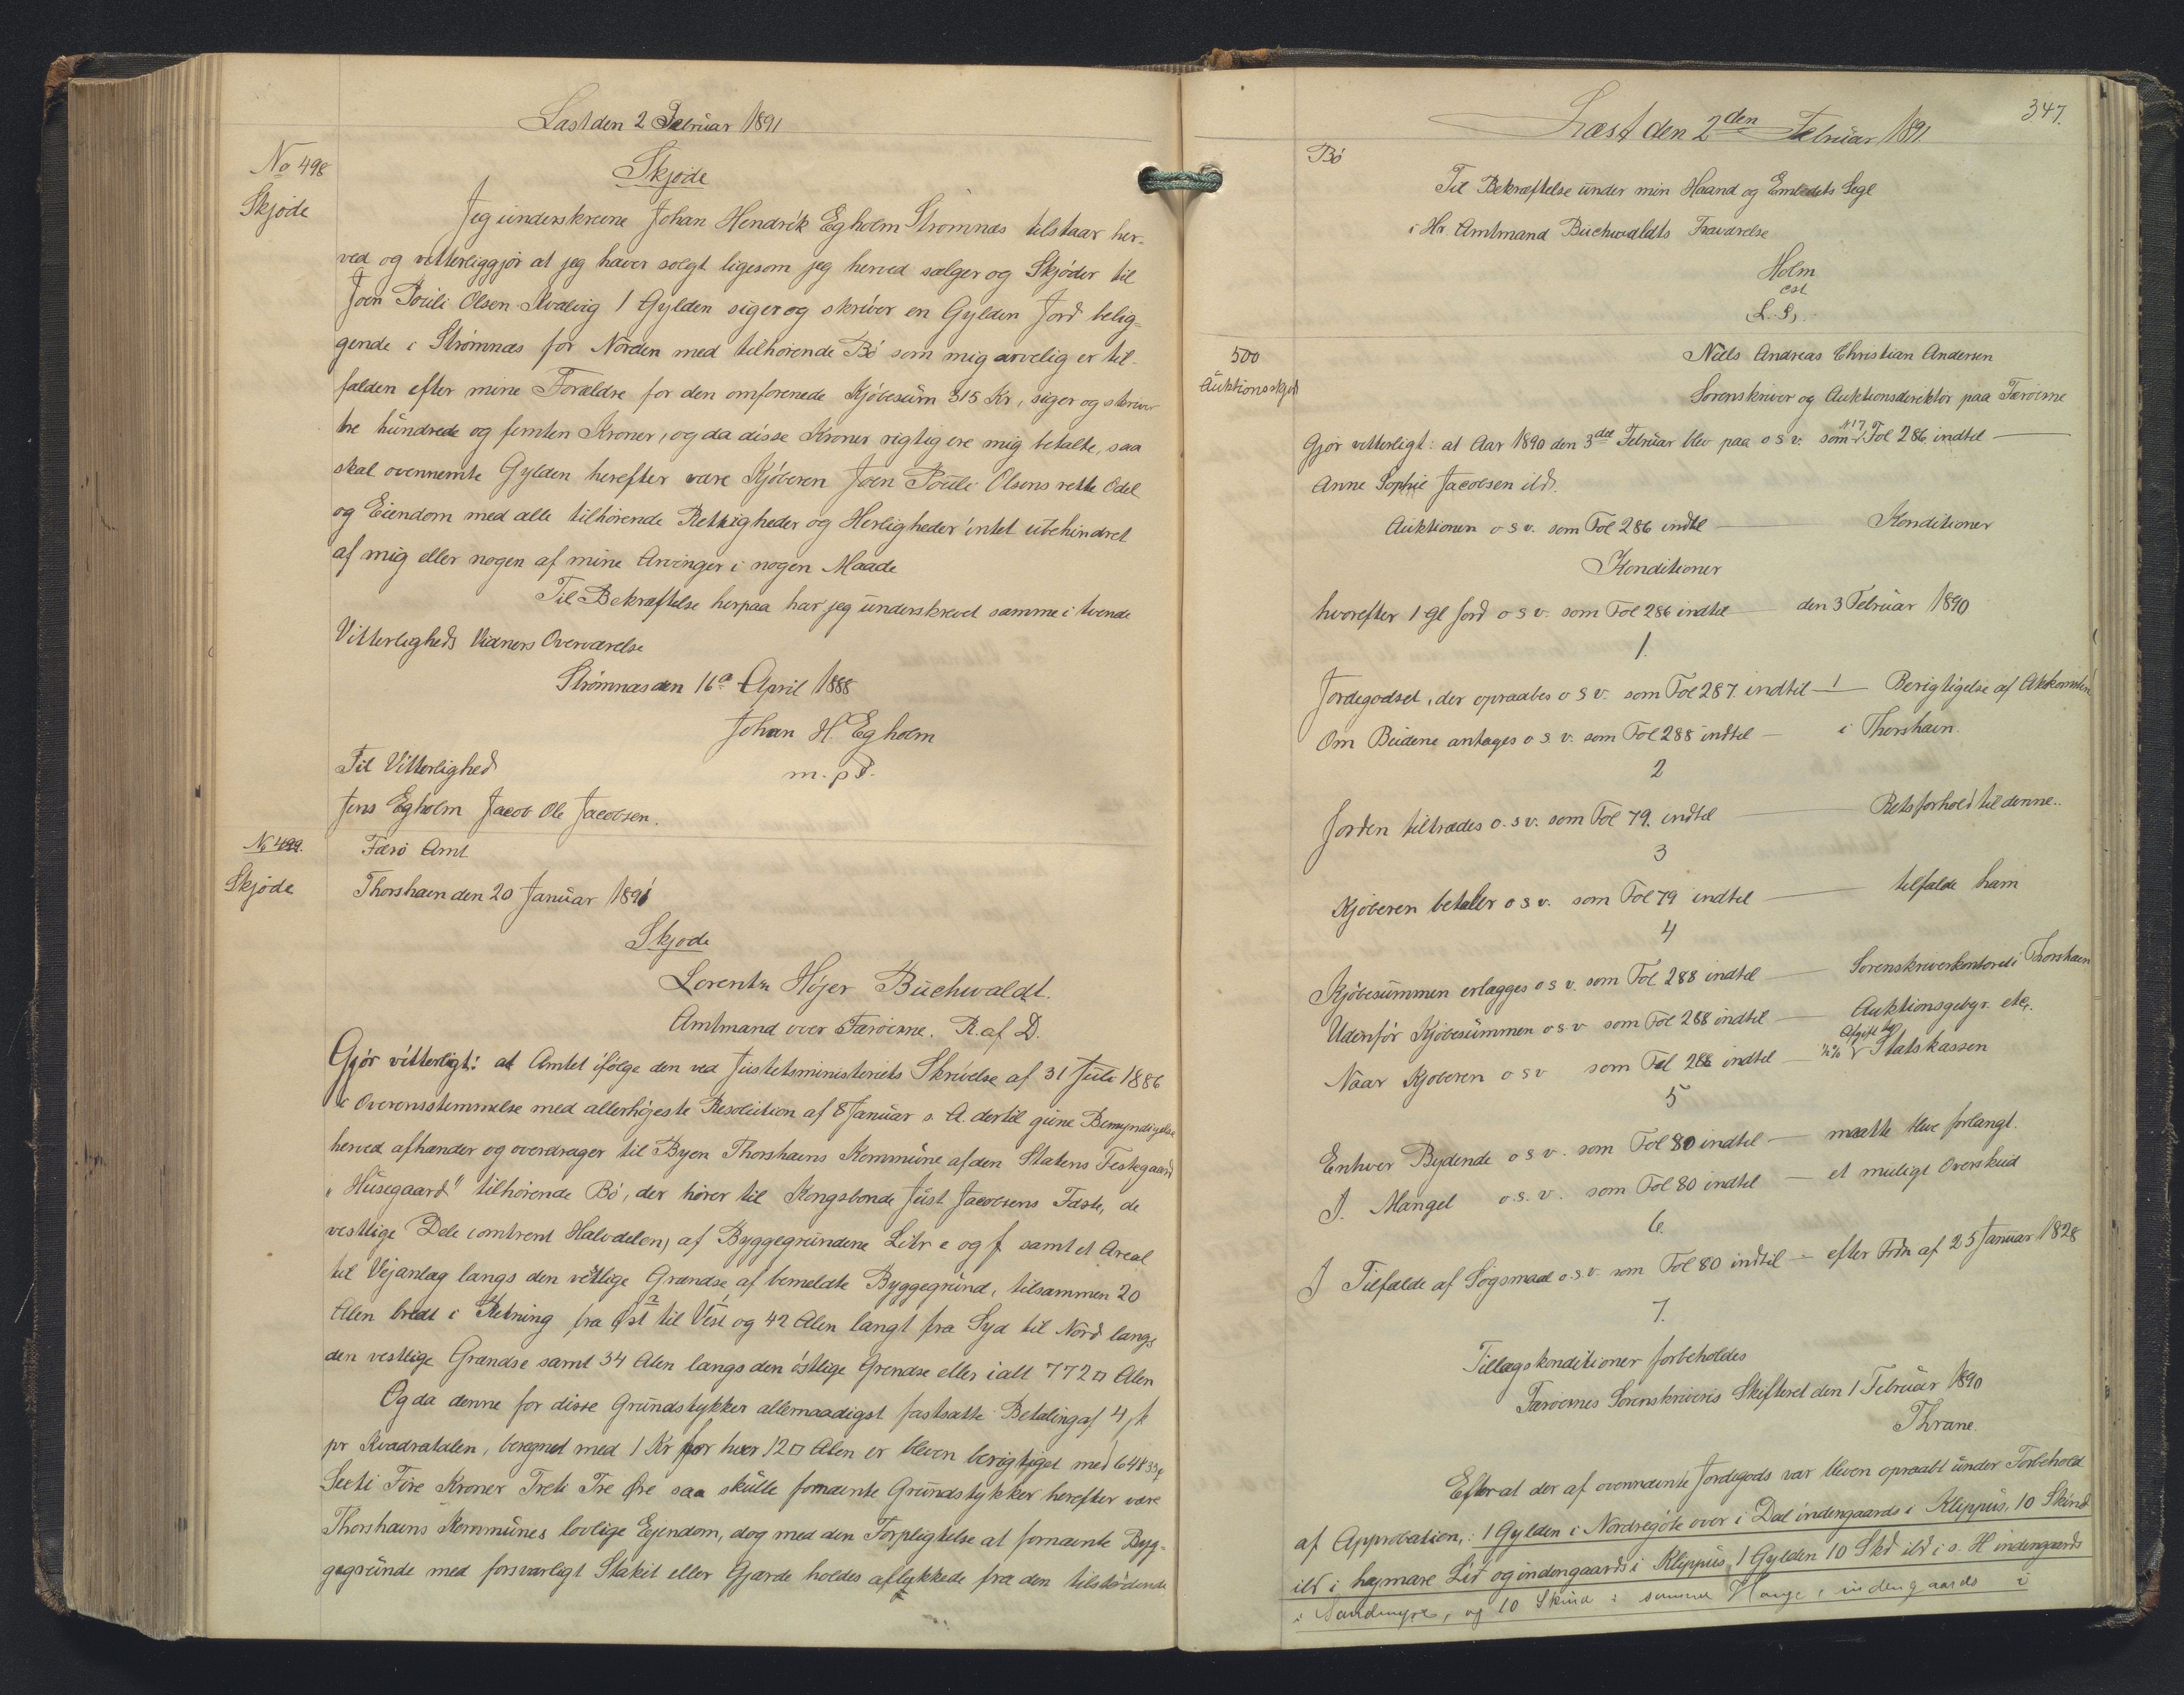 Læst den 2 Februar 1891
No 498
Skjøde
Skjøde
Jeg underskrevne Johan Hendrik Egholm Strømnæs tilstaar her-
ved og vitterliggjør at jeg haver solgt ligesom jeg herved sælger og Skjøder til
Joen Pouli Olsen Kvalvig 1 Gylden siger og skriver en Gylden Jord belig-
gende i Strømnæs for Norden med tilhørende Bø som mig arvelig er til-
falden efter mine Forældre for den omforenede Kjøbesum 315 Kr, siger og skriver
tre hundrede og femten Kroner, og da disse Kroner rigtig ere mig betalte, saa
skal ovennemte Gylden herefter være Kjøberen Joen Pouli Olsens rette Odel
og Eiendom med alle tilhørende Rettigheder og Herligheder intet ubehindret
af mig eller nogen af mine Arvinger i nogen Maade
Til Bekræftelse herpaa har jeg underskrevet samme i tvende
Vitterligheds Vidners Overværelse
Strømnæs den 16de April 1888
Johan H. Egholm
m. p.
Til Vitterlighed
Jens Egholm Jacob Ole Jacobsen.
No 499.
Skjøde
Færø Amt
Thorshavn den 20 Januar 1891
Skjøde
Lorentz Højer Buchwaldt.
Amtmand over Færøerne. R. af D.
Gjør vitterligt: at Amtet ifølge den ved Justetsministeriets Skrivelse af 31 Juli 1886
i Overensstemmelse med allerhøjeste Resolution af 8 Januar s. A. dertil givne Bemyndigelse
herved afhænder og overdrager til Byen Thorshavns Kommune af den Statens Festegaard
"Husegaard" tilhørende Bø, der hører til Kongsbonde Just Jacobsens Fæste, de
vestlige Dele (omtrent Halvdelen) af Byggegrundene Litr e og f samt et Areal
til Vejanlæg langs den vestlige Grændse af bemeldte Byggegrund, tilsammen 20
Alen bredt i Retning fra Øst til Vest og 42 Alen langt fra Syd til Nord langs
den vestlige Grændse samt 34 Alen langs den østlige Grendse eller ialt 772 □ Alen
Og da denne for disse Grundstykker allernaadigst fastsatte Betaling af 4 sk
pr Kvadratalen, beregnet med 1 Kr for hver 12 □ Alen er bleven berigtiget med 64 Kr 33 ø
Seeti Fire Kroner Treti Tre Øre saa skulle fornævnte Grundstykker herefter være
Thorshavns Kommunes lovlige Ejendom, dog med den Forpligtelse at fornævnte Byg-
gegrunde med forsvarligt Stakit eller Gjærde holdes aflukkede fra den tilstødende
347.
Læst den 2den Februar 1891.
Bø
Til Bekræftelse under min Haand og Embedets Segl
i Hr Amtmand Buchwaldts Fraværelse
Holm
cst
L. S.
500
Auktionsskjøde
Niels Andreas Christian Andersen
Sorenskriver og Auktionsdirektør paa Færøerne
Gjør vitterligt: at Aar 1890 den 3die Februar blev paa o s v. som No 7 Fol 286 indtil —
Anne Sophie Jacobsen ibd.
Auktionen o s v. som Fol 286 indtil — Konditioner
Konditioner
hvorefter 1 Gl Jord o s v. som Fol 286 indtil — den 3 Februar 1890
1.
Jordegodset, der opraabes o s v. som Fol 287. indtil — 1 — Berigtigelse af Akkomten
Om Budene antages o s. v. som Fol 288 indtil — i Thorshavn.
2
Jorden tiltrædes o. s v. som Fol 79. indtil — Retsforhold til denne..
3
Kjøberen betaler o s v. som Fol 79 indtil — tilfalde ham
4
Kjøbesummen erlægges o s v. som Fol 288 indtil — Sorenskriverkontoret i Thorshavn
Udenfor Kjøbesummen o s v som Fol 288 indtil — Auktionsgebyr. etc.
Naar Kjøberen o s v som Fol 288 indtil — ½ % Afgift til Statskassen
5
Enhver Bydende o s v. som Fol 80 indtil — maatte blive forlangt.
I Mangel o. s. v. som Fol 80 indtil — et muligt Overskud
6.
I Tilfælde af Søgsmaal o. s. v. som Fol 80 indtil — efter Frdn af 25 Januar 1828
7.
Tillægskonditioner forbeholdes
Færøernes Sorenskriveris Skifteret den 1 Februar 1890
Thrane.
Efter at der af ovennævnte Jordegods var bleven opraabt under Forbehold
af Approbation,: 1 Gylden i Nordregøte over i Dal indengaards i Klippus, 10 Skind
ibd i hajmare Lid og indengaards i Klippus, 1 Gylden 10 Skd ibd i s. H indengaards
i Sandmyre, og 10 Skind i samme Hauge, indengaards i